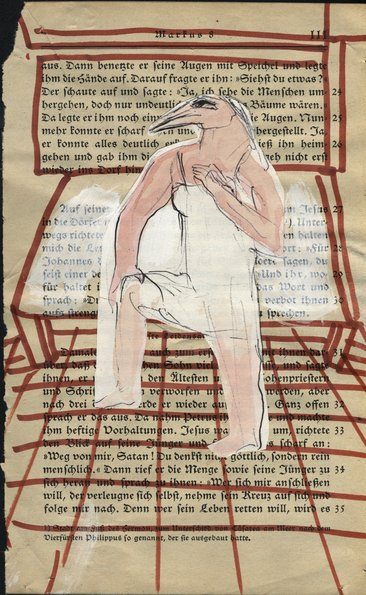 Markus 8
aus. Dann benetzte er seine Augen mit Speichel und legte
ihm die Hände auf. Darauf fragte er ihn: »Siehst du etwas?«
Der schaute auf und sagte: »Ja, ich sehe die Menschen um- 24
hergehen, doch nur undeutli Bäume wären.«
Da legte er ihm noch ein die Augen. Nun 25
mehr konnte er scharf hergestellt. Ja,
er konnte alles deutlich ihn heim- 26
gehen und gab ihm di nicht erst
wieder ins Dorf hin
Auf seiner Jesus 27
in die Dörfer Unter-
wegs richtete halten
mich die Le ort: »Für 28
Johannes sagen, du
seist einer de Und ihr, wo- 29
für haltet i das Wort und
sprach: »D verbot ihnen 30
aufs streng sprechen.
Damals auch zum er mit ihnen dar- 31
über, daß Sohn viel und sagte
ihnen, er den Ältesten Hohenpriestern
und Schri verworfen werden, aber
nach drei erde er wieder au Ganz offen 32
sprach er das aus. Da nahm Petrus ih und machte
ihm heftige Vorhaltungen. Jesus wa um, richtete 33
den Blick auf seine Jünger und scharf an:
»Weg von mir, Satan! Du denkst nicht göttlich, sondern rein
menschlich.« Dann rief er die Menge sowie seine Jünger zu 34
sich heran und sprach zu ihnen: »Wer sich mir anschließen
will, der verleugne sich selbst, nehme sein Kreuz auf sich und
folge mir nach. Denn wer sein Leben retten will, wird es 35
1) Stadt am Fuß des Hermon, zum Unterschied von Cäsarea am Meer nach dem
Vierfürsten Philippus so genannt, der sie ausgebaut hatte.